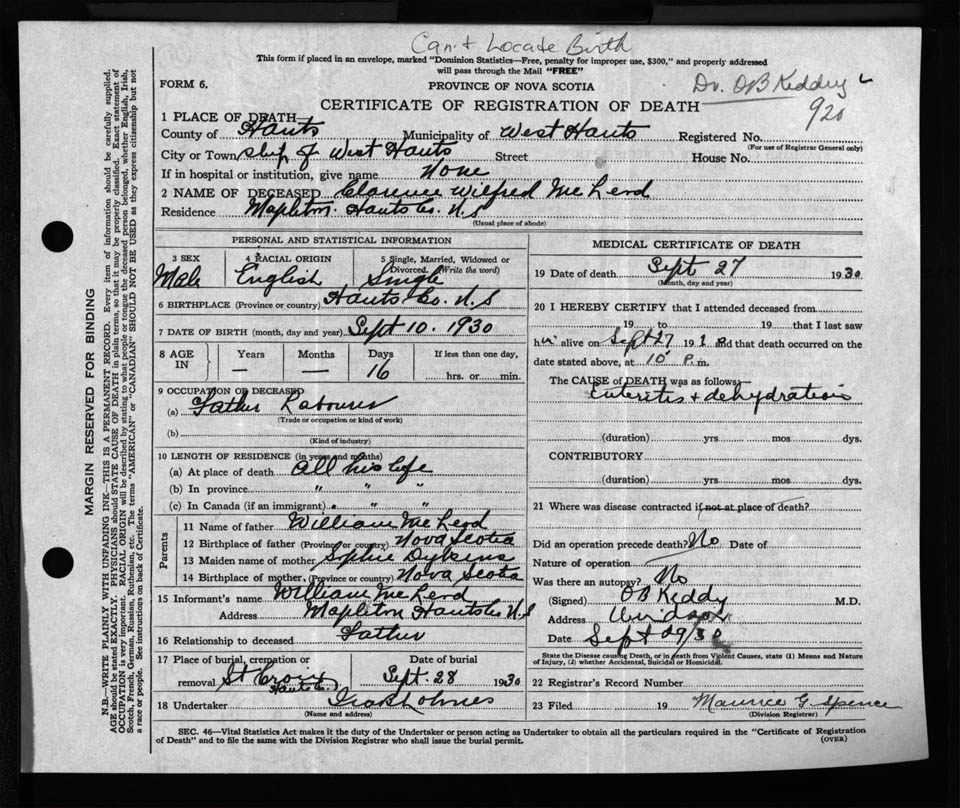 Can't Locate Birth
This form if placed in an envelope, marked "Dominion Statistics—Free, penalty for improper use, $300," and properly addressed
will pass through the Mail "FREE"
Dr. OB Keddy
920
FORM 6.
PROVINCE OF NOVA SCOTIA
CERTIFICATE OF REGISTRATION OF DEATH
1 PLACE OF DEATH
County of Hants Municipality of West Hants Registered No.
(For use of Registrar General only)
City or Town ship of West Hants Street House No.
If in hospital or institution, give name None
2 NAME OF DECEASED Clarence Wilfred
Residence Mapleton. Hants Co. N.S
(Usual place of abode)
PERSONAL AND STATISTICAL INFORMATION
3 SEX 4 RACIAL ORIGIN 5 Single, Married, Widowed or
Divorced. (Write the word)
Male English Single
6 BIRTHPLACE (Province or country) Hants Co. N.S
7 DATE OF BIRTH (month, day and year) Sept 10. 1930
8 AGE IN Years Months Days If less than one day,
— — 16 hrs. or min.
9 OCCUPATION OF DECEASED
(a) Father Labourer
(Trade or occupation or kind of work)
(b)
(Kind of industry)
10 LENGTH OF RESIDENCE (in years and months)
(a) At place of death All his life
(b) In province " " "
(c) In Canada (if an immigrant) " " "
Parents
11 Name of father William
12 Birthplace of father (Province or country) Nova Scotia
13 Maiden name of mother Sophie
14 Birthplace of mother, (Province or country) Nova Scotia
15 Informant's name William
Address Mapleton Hants Co N.S
16 Relationship to deceased Father
17 Place of burial, cremation or Date of burial
removal St Croix Sept 28 1930
Hants Co.
18 Undertaker
(Name and address)
MEDICAL CERTIFICATE OF DEATH
19 Date of death Sept 27 1930
(Month, day and year)
20 I HEREBY CERTIFY that I attended deceased from
19 to 19 that I last saw
h alive on Sept 27 19 and that death occurred on the
date stated above, at 10 P.m.
The CAUSE of DEATH was as follows:
Enteritis + dehydration
(duration) yrs mos dys.
CONTRIBUTORY
(duration) yrs mos dys.
21 Where was disease contracted if not at place of death?
Did an operation precede death? No Date of
Nature of operation
Was there an autopsy? No
(Signed) OB Keddy M.D.
Address Windsor
Date Sept 29/30
State the Disease causing Death, or in death from Violent Causes, state (1) Means and Nature
of Injury, (2) whether Accidental, Suicidal or Homicidal.
22 Registrar's Record Number
23 Filed 19 Maurice G. Spence
(Division Registrar)
SEC. 46—Vital Statistics Act makes it the duty of the Undertaker or person acting as Undertaker to obtain all the particulars required in the "Certificate of Registration
of Death" and to file the same with the Division Registrar who shall issue the burial permit.
(OVER)
MARGIN RESERVED FOR BINDING
N.B.—WRITE PLAINLY WITH UNFADING INK—THIS IS A PERMANENT RECORD. Every item of information should be carefully supplied.
AGE should be stated EXACTLY. PHYSICIANS should STATE CAUSE OF DEATH in plain terms, so that it may be properly classified. Exact statement of
OCCUPATION is very important. RACIAL ORIGIN will be described by stating to what people or tongue the deceased person belonged, whether English, Irish,
Scotch, French, German, Russian, Ruthenian, etc. The terms "AMERICAN" or "CANADIAN" SHOULD NOT BE USED as they express citizenship but not
a race or people. See instructions on back of Certificate.